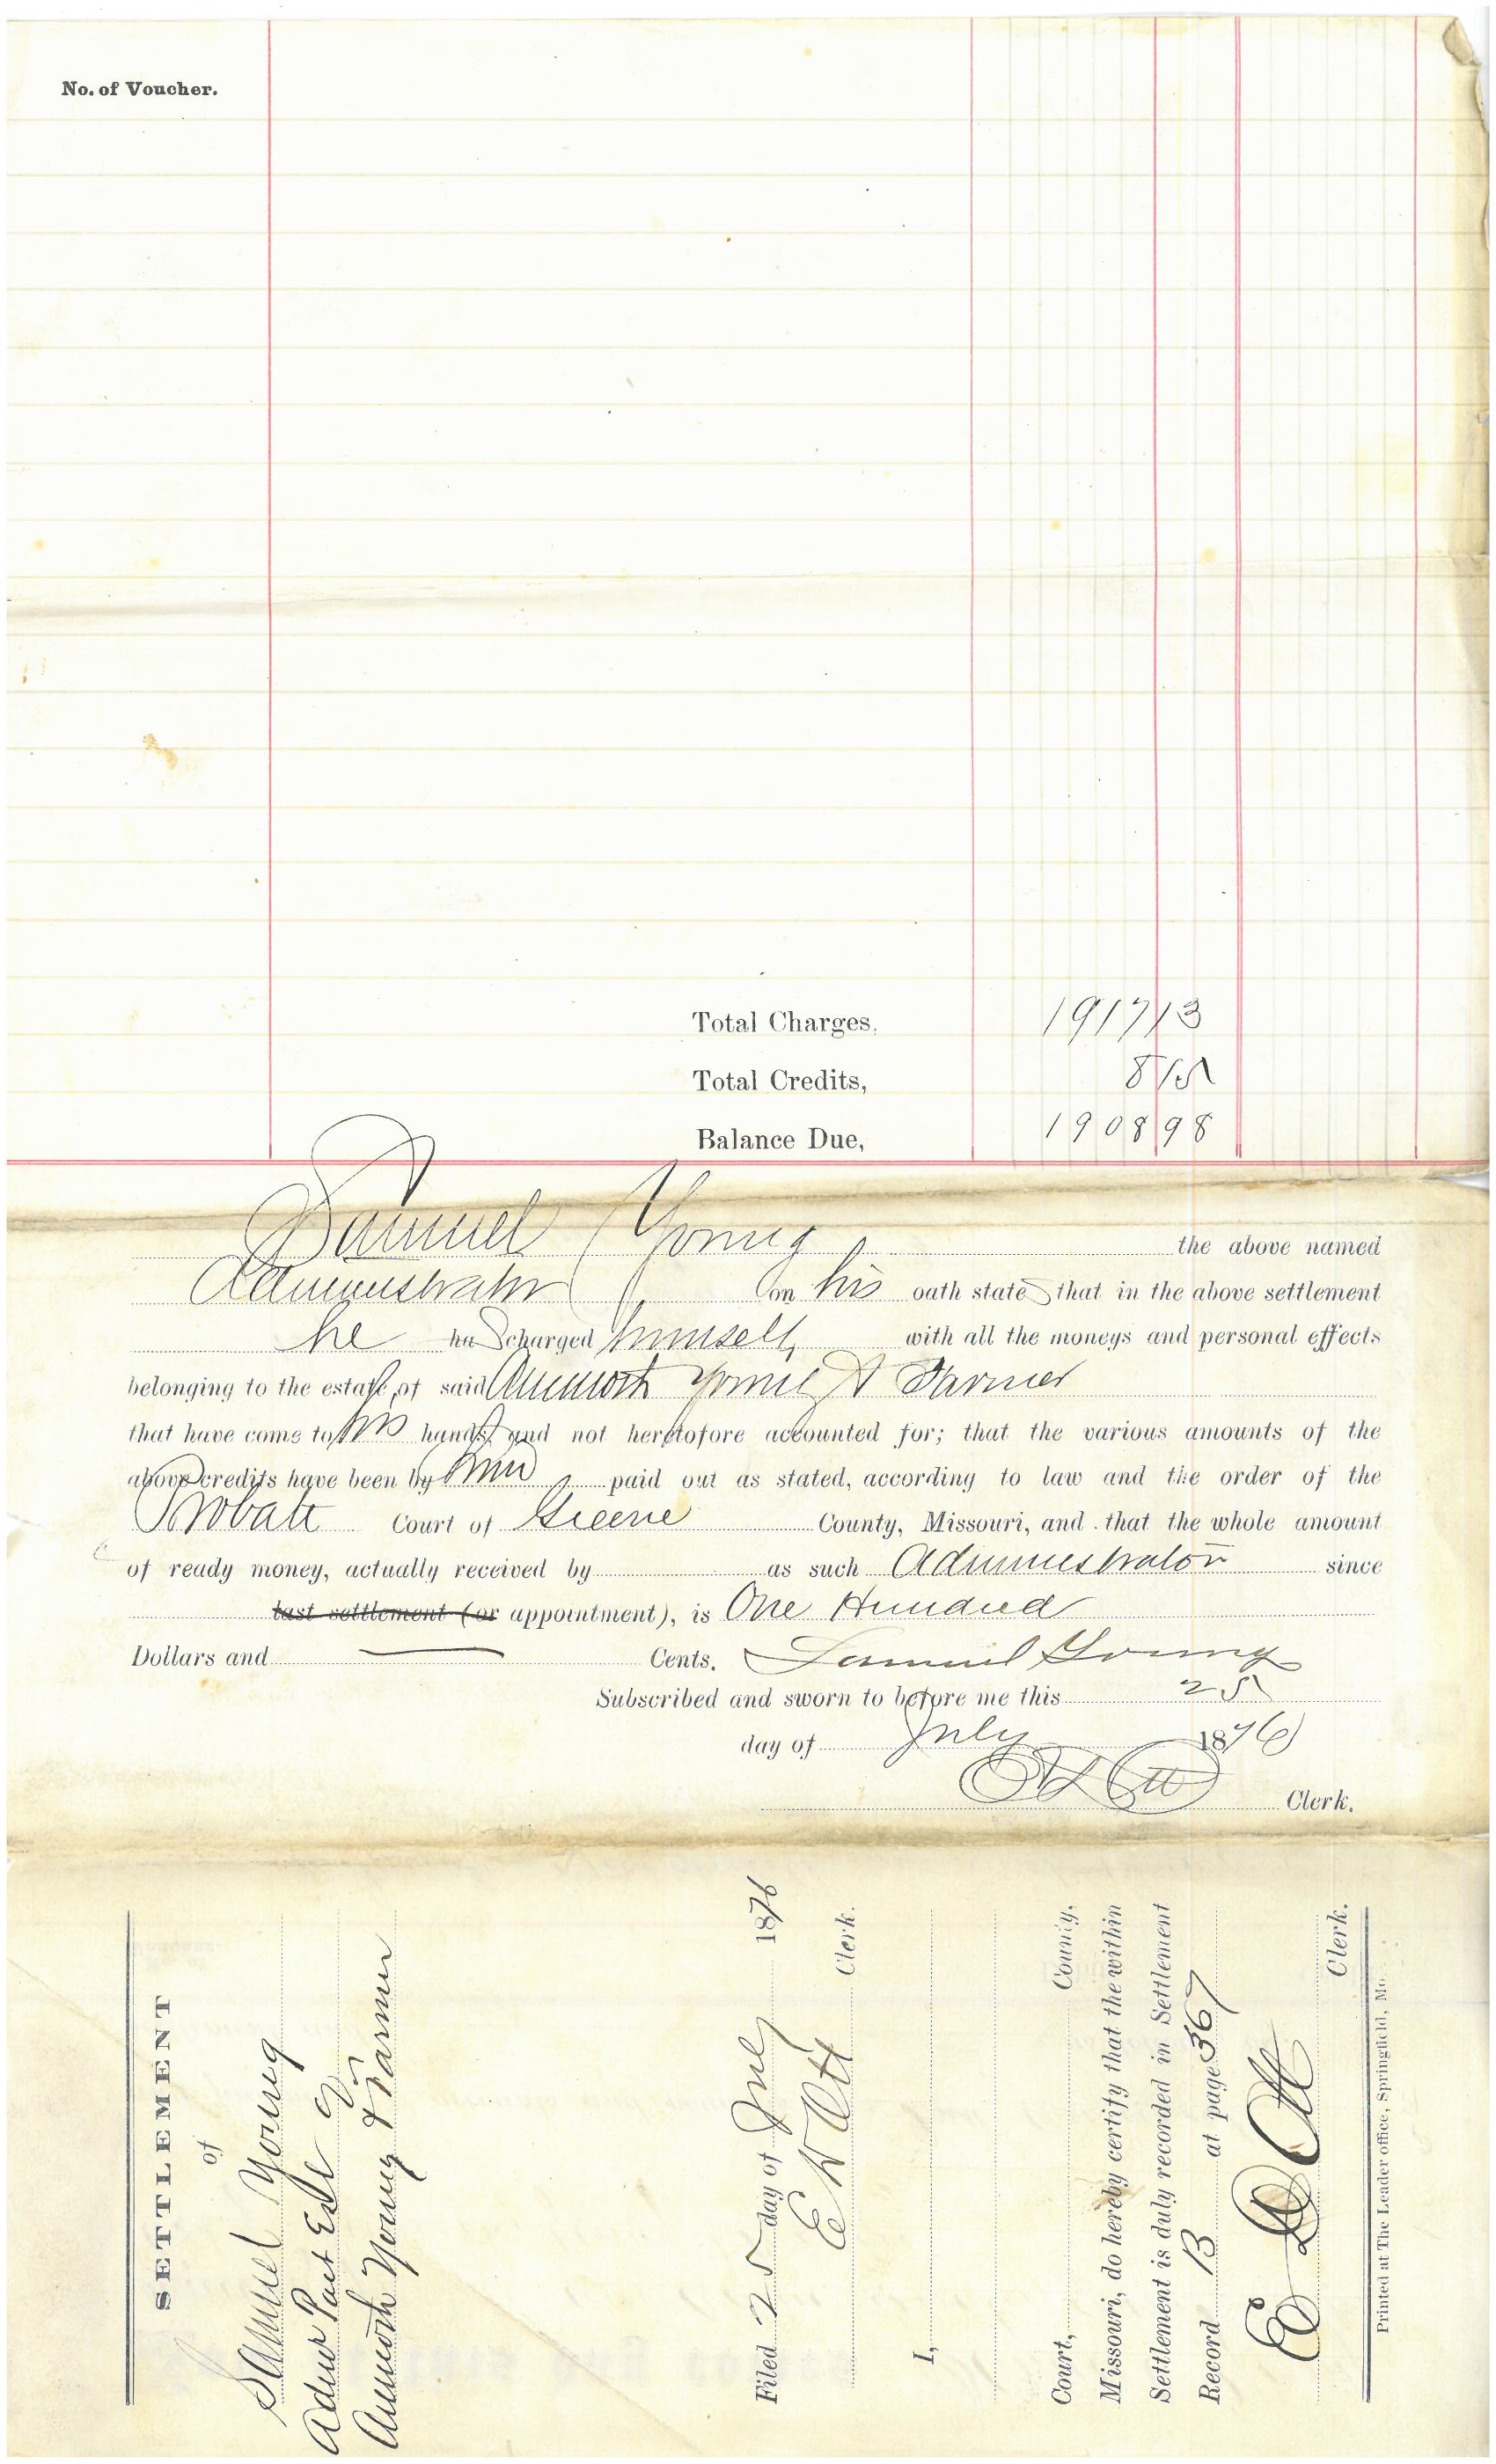 No. of Voucher.
Total Charges, 1917 13
Total Credits, 8 15
Balance Due, 1908 98
Samuel Young the above named
Administrator on his oath states that in the above settlement
he has charged himself with all the moneys and personal effects
belonging to the estate of said Young & Farmer
that have come to his hands and not heretofore accounted for; that the various amounts of the
above credits have been by him paid out as stated, according to law and the order of the
Probate Court of Greene County, Missouri, and that the whole amount
of ready money, actually received by as such Administrator since
last settlement (or appointment), is One Hundred
Dollars and — Cents. Samuel Young
Subscribed and sworn to before me this 25
day of July 1876
Clerk.
SETTLEMENT
of
Samuel Young
Admr Part Est of
Young & Farmer
Filed 25 day of July 1876
E W Ott Clerk.
I,
Court, County,
Missouri, do hereby certify that the within
Settlement is duly recorded in Settlement
Record B at page 367
E D Ott Clerk.
Printed at The Leader office, Springfield, Mo.